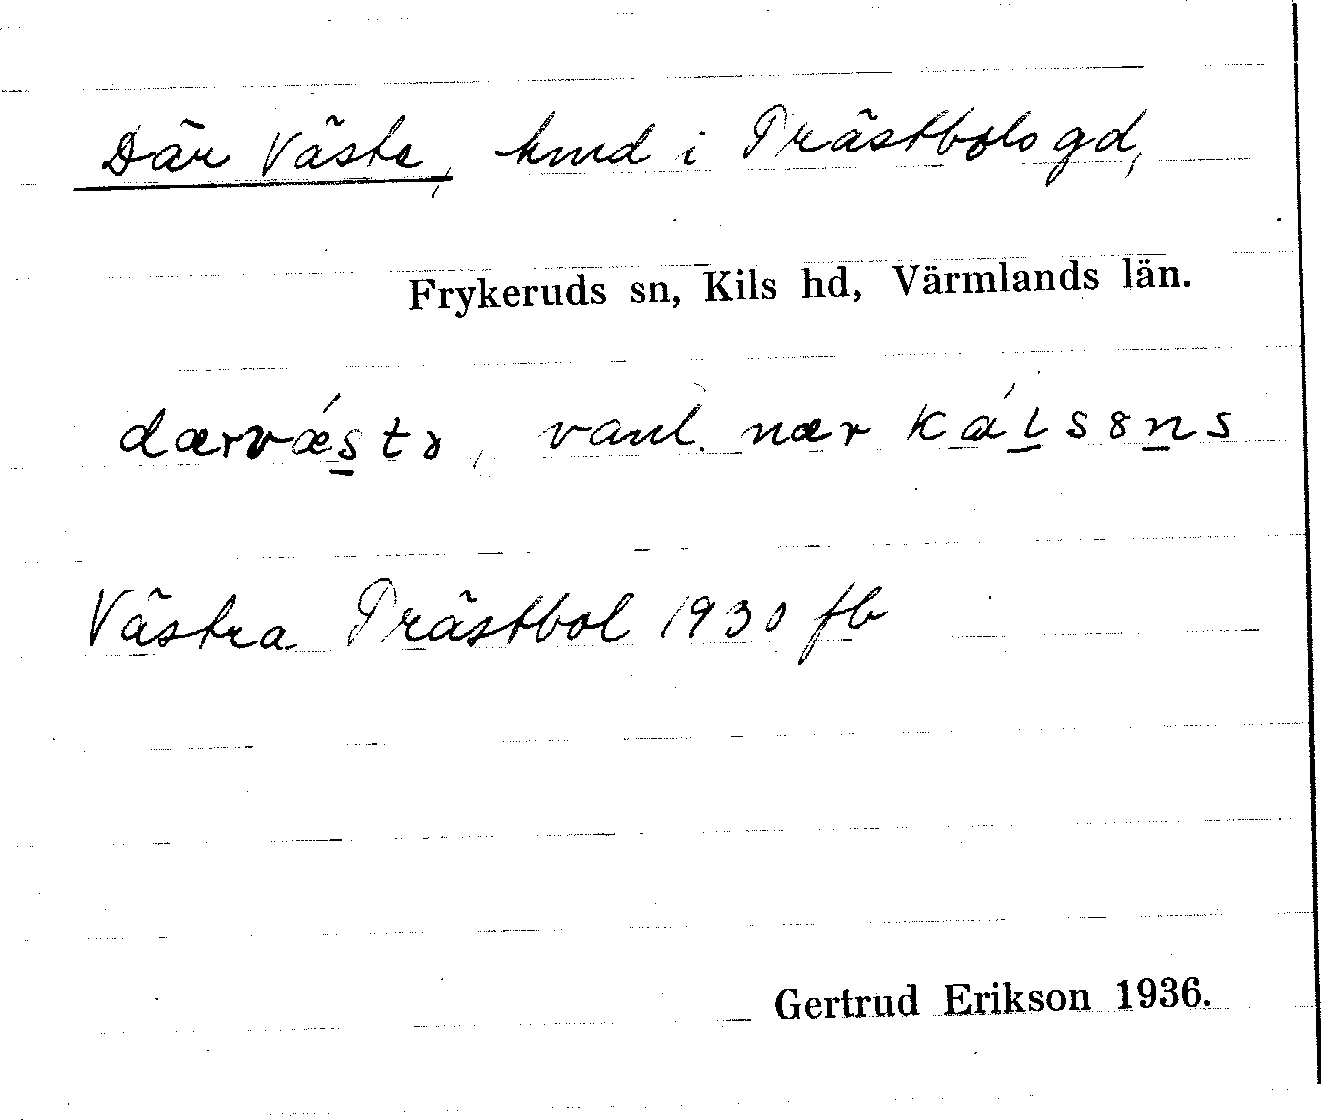 Där Väste, hmd i Prästbols gd,
Frykeruds sn, Kils hd, Värmlands län.
dærvǽstə, vanl. nær
Västra Prästbol 1930 fb
Gertrud Erikson 1936.